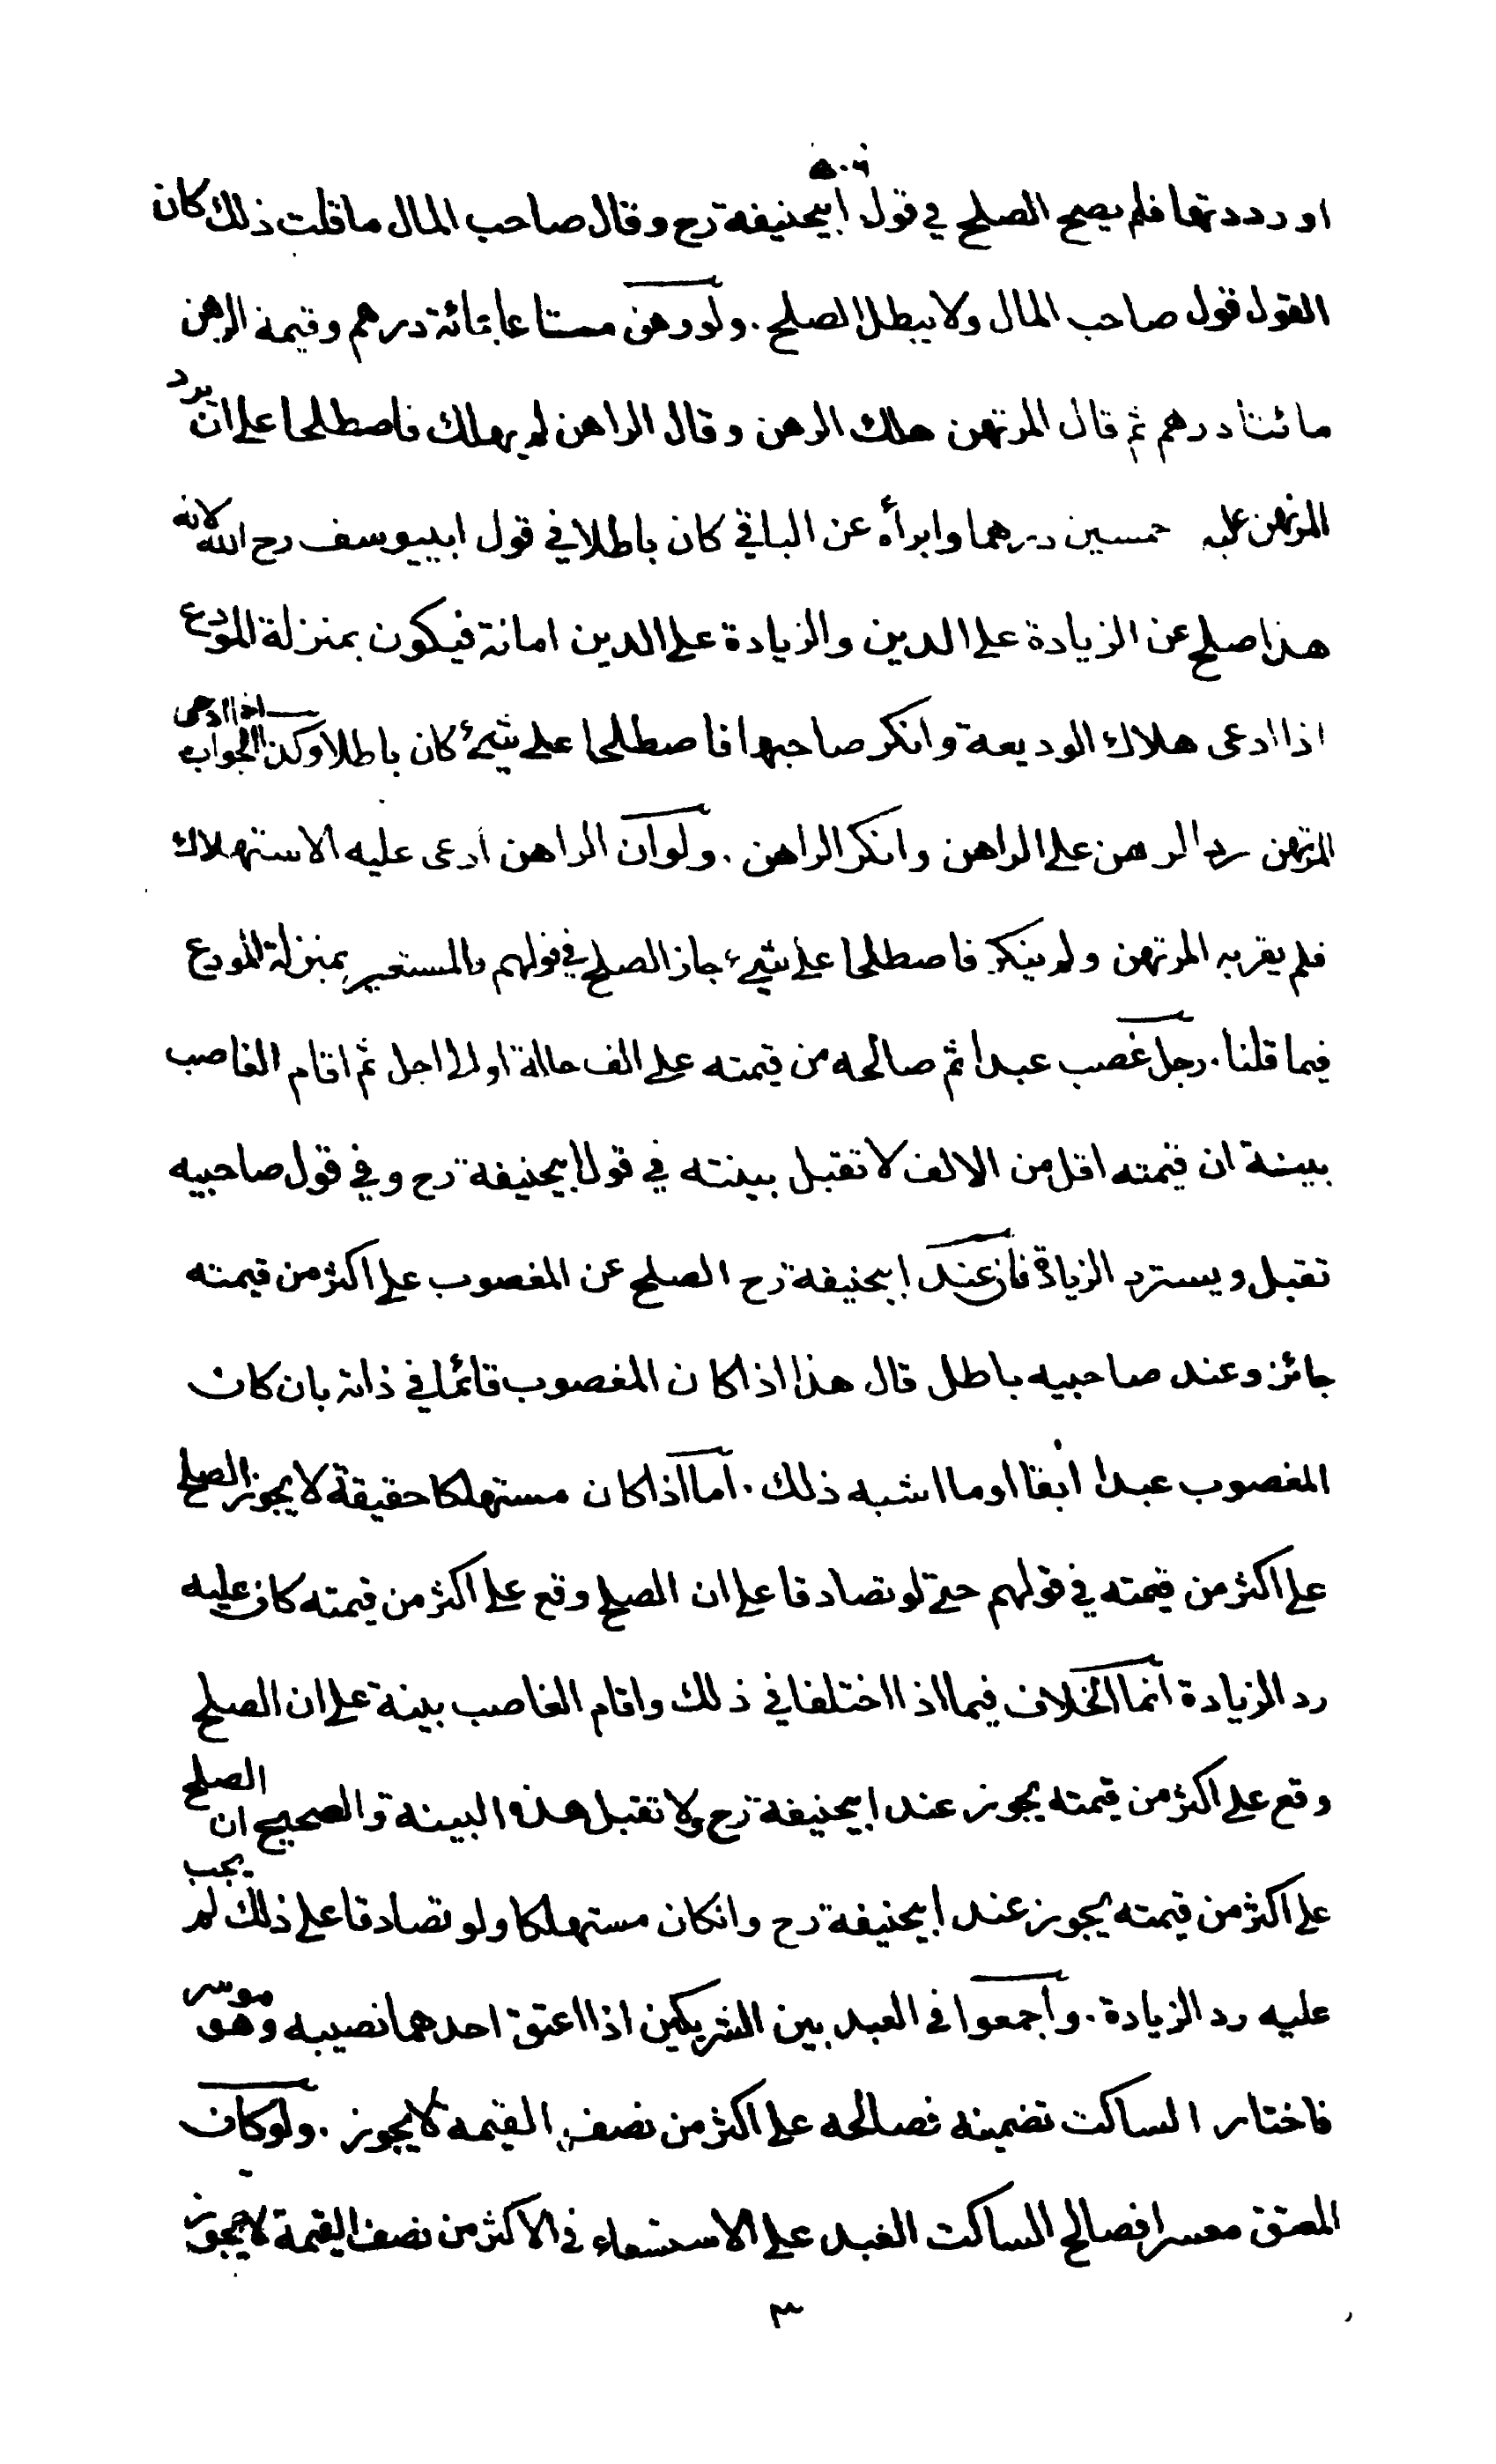 ٥٠٦
او رددتها فلم يصح الصلح في قول ابيحنيفة رح وقال صاحب المال ما قلت ذلك كان
القول قول صاحب المال ولا يبطل الصلح . ولو رهن متاعا بمائة درهم وقيمة الرهن
مائتا درهم ثم قال المرتهن هلك الرهن وقال الراهن لم يهلك فاصطلحا على ان يرد
المرتهن عليه خمسين درهما وابرأه عن الباقي كان باطلا في قول ابييوسف رح الله لانه
هذا صلح عن الزيادة على الدين والزيادة على الدين امانة فيكون بمنزلة المودع
اذا ادعى هلاك الوديعة وانكر صاحبها فاصطلحا على شيئ كان باطلا وكذا الجواب اذا ادعى
المرتهن رد الرهن على الراهن وانكر الراهن . ولو ان الراهن ادعى عليه الاستهلاك
فلم يقر به المرتهن ولم ينكر فاصطلحا على شيئ جاز الصلح في قولهم والمستعير بمنزلة المودع
فيما قلنا . رجل غصب عبدا ثم صالحه من قيمته على الف حالة او الى اجل ثم اقام الغاصب
بينة ان قيمته اقل من الالف لا تقبل بينته في قول ابيحنيفة رح وفي قول صاحبيه
تقبل ويسترد الزيادة فان عند ابيحنيفة رح الصلح عن المغصوب على اكثر من قيمته
جائز وعند صاحبيه باطل قال هذا اذا كان المغصوب قائما في ذاته بان كان
المغصوب عبدا أبقا او ما اشبه ذلك . اما اذا كان مستهلكا حقيقة لا يجوز الصلح
على اكثر من قيمته في قولهم حتى لو تصادقا على ان الصلح وقع على اكثر من قيمته كان عليه
رد الزيادة انما الخلاف فيما اذا اختلفا في ذلك واقام الغاصب بينة على ان الصلح
وقع على اكثر من قيمته يجوز عند ابيحنيفة رح ولا تقبل هذه البينة والصحيح ان الصلح
على اكثر من قيمته يجوز عند ابيحنيفة رح وانكان مستهلكا ولو تصادقا على ذلك لم يجب
عليه رد الزيادة . واجمعوا في العبد بين الشريكين اذا اعتق احدهما نصيبه وهو موسر
فاختار الساكت تضمينه فصالحه على اكثر من نصف القيمه لا يجوز . ولو كان
المعتق معسرا فصالح الساكت العبد على الاستسعاء في الاكثر من نصف القيمة لا يجوز
٣